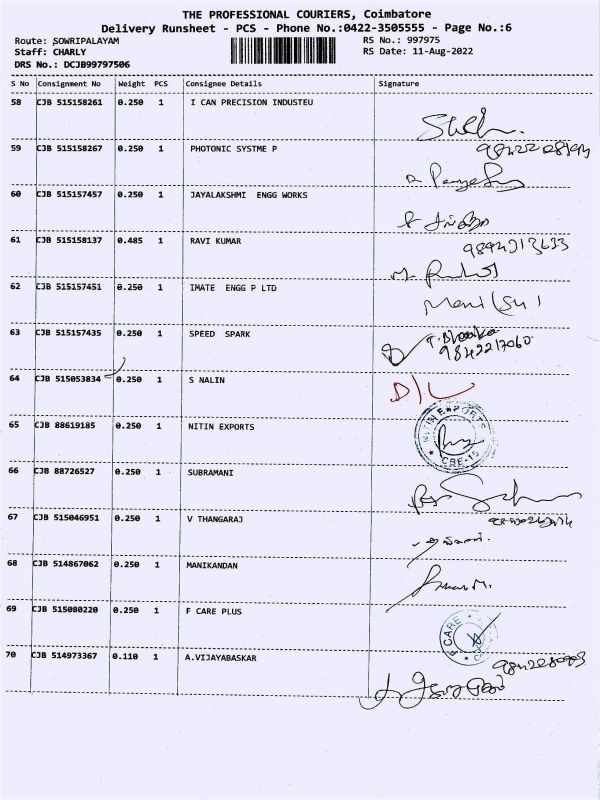 THE PROFESSIONAL COURIERS, Coimbatore
Delivery Runsheet - PCS - Phone No.:0422-3505555 - Page No.:6
Route: SOWRIPALAYAM RS No.: 997975
Staff: CHARLY RS Date: 11-Aug-2022
DRS No.: DCJB99797506
S No Consignment No Weight PCS Consignee Details Signature
58 CJB 515158261 0.250 1 I CAN PRECISION INDUSTEU
59 CJB 515158267 0.250 1 PHOTONIC SYSTME P
60 CJB 515157457 0.250 1 JAYALAKSHMI ENGG WORKS
61 CJB 515158137 0.485 1 RAVI KUMAR
62 CJB 515157451 0.250 1 IMATE ENGG P LTD
63 CJB 515157435 0.250 1 SPEED SPARK
9842217060
64 CJB 515053834 0.250 1 S NALIN D/L
65 CJB 88619185 0.250 1 NITIN EXPORTS
NITIN EXPORTS
CBE-15
66 CJB 88726527 0.250 1 SUBRAMANI
67 CJB 515046951 0.250 1 V THANGARAJ
68 CJB 514867062 0.250 1 MANIKANDAN
69 CJB 515080220 0.250 1 F CARE PLUS
F CARE
70 CJB 514973367 0.110 1 A.VIJAYABASKAR